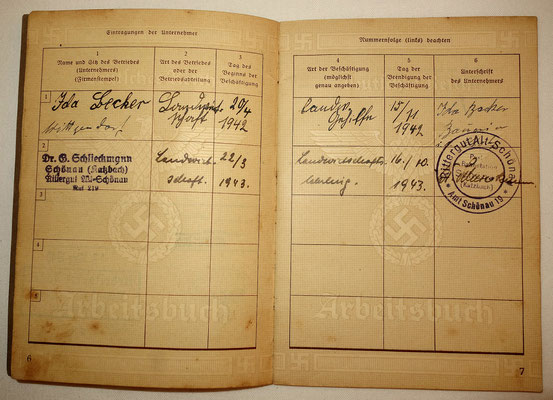 Eintragungen der Unternehmer
1
Name und Sitz des Betriebes
(Unternehmers)
(Firmenstempel)
2
Art des Betriebes
oder der
Betriebsabteilung
3
Tag des
Beginns der
Beschäftigung
1
Ida Becker
Landwirt-
schaft
20/4
1942
2
Dr. G. Schlieckmann
Schönau (Katzbach)
Rittergut Alt-Schönau
Ruf 219
Landwirt
schaft
22/3
1943.
3
4
5
Arbeitsbuch
6
Nummernfolge (links) beachten
4
Art der Beschäftigung
(möglichst
genau angeben)
5
Tag der
Beendigung der
Beschäftigung
6
Unterschrift
des Unternehmers
Landw.
Gehilfe
15/
11
1942
Ida Becker
Bäuerin
Landwirtschafts
lehrling
16./10.
1943.
Rittergut Alt-Schönau
(Katzbach)
* Amt Schönau 19 *
Arbeitsbuch
7